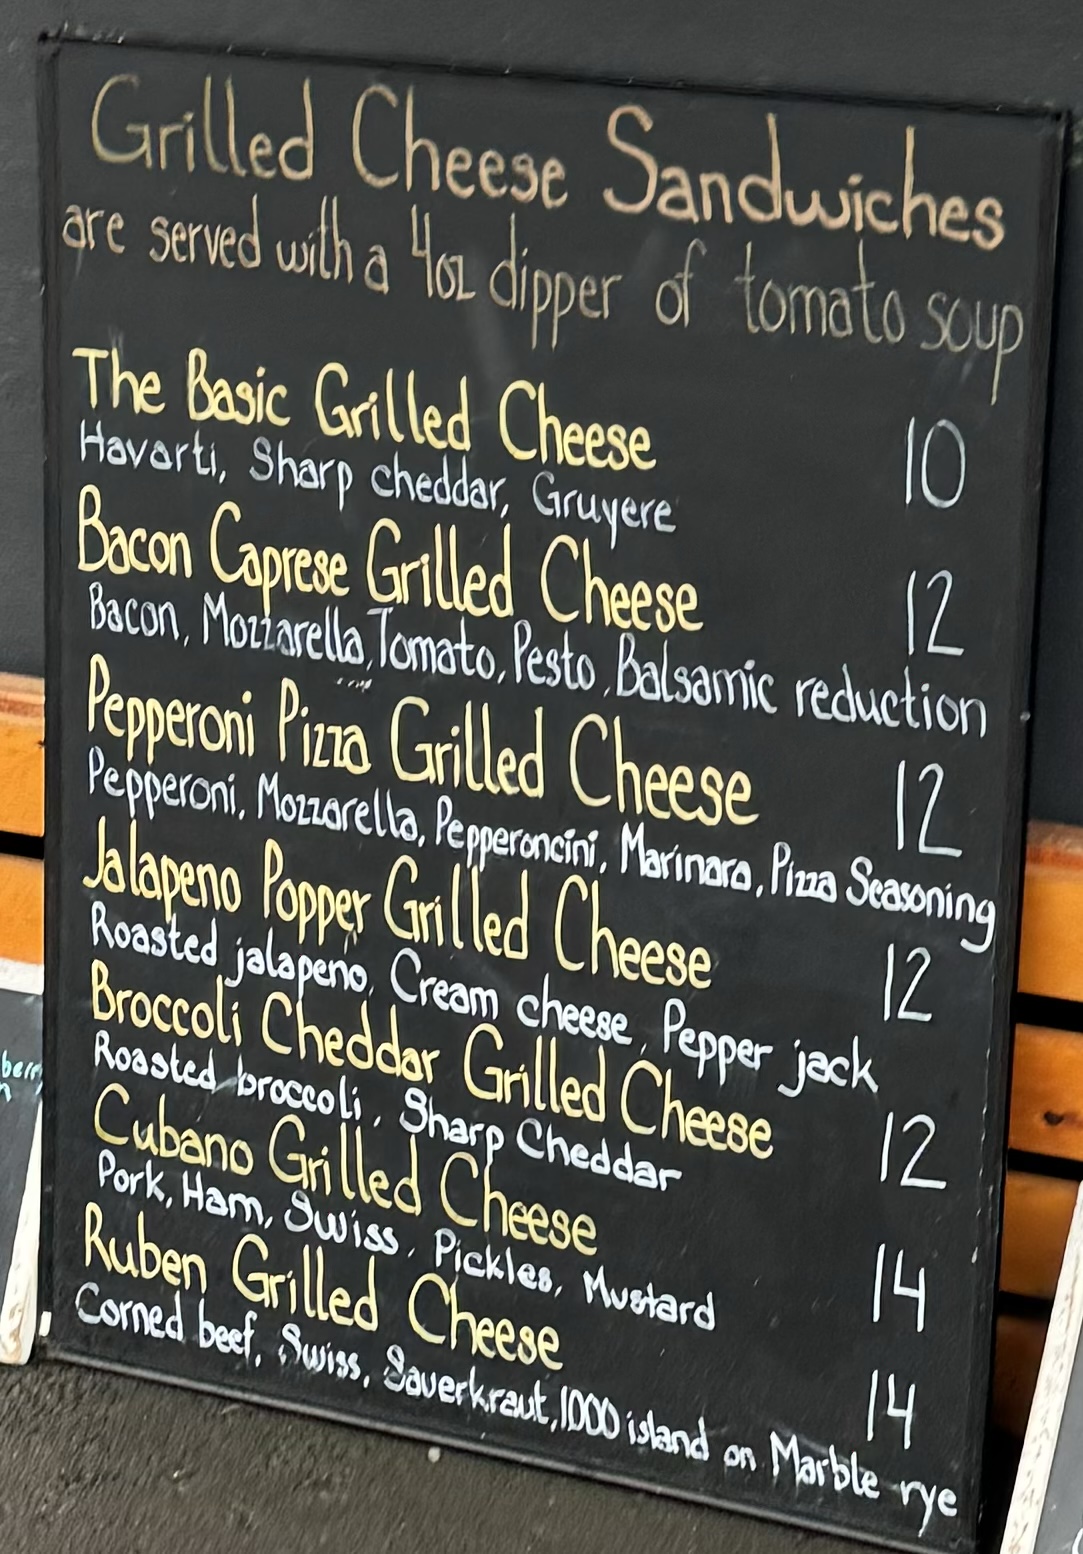 Grilled Cheese Sandwiches
are served with a 4oz dipper of tomato soup
The Basic Grilled Cheese 10
Havarti, Sharp cheddar, Gruyere
Bacon Caprese Grilled Cheese 12
Bacon, Mozzarella, Tomato, Pesto, Balsamic reduction
Pepperoni Pizza Grilled Cheese 12
Pepperoni, Mozzarella, Pepperoncini, Marinara, Pizza Seasoning
Jalapeno Popper Grilled Cheese 12
Roasted jalapeno, Cream cheese, Pepper jack
Broccoli Cheddar Grilled Cheese 12
Roasted broccoli, Sharp Cheddar
Cubano Grilled Cheese 14
Pork, Ham, Swiss, Pickles, Mustard
Ruben Grilled Cheese 14
Corned beef, Swiss, Sauerkraut, 1000 island on Marble rye